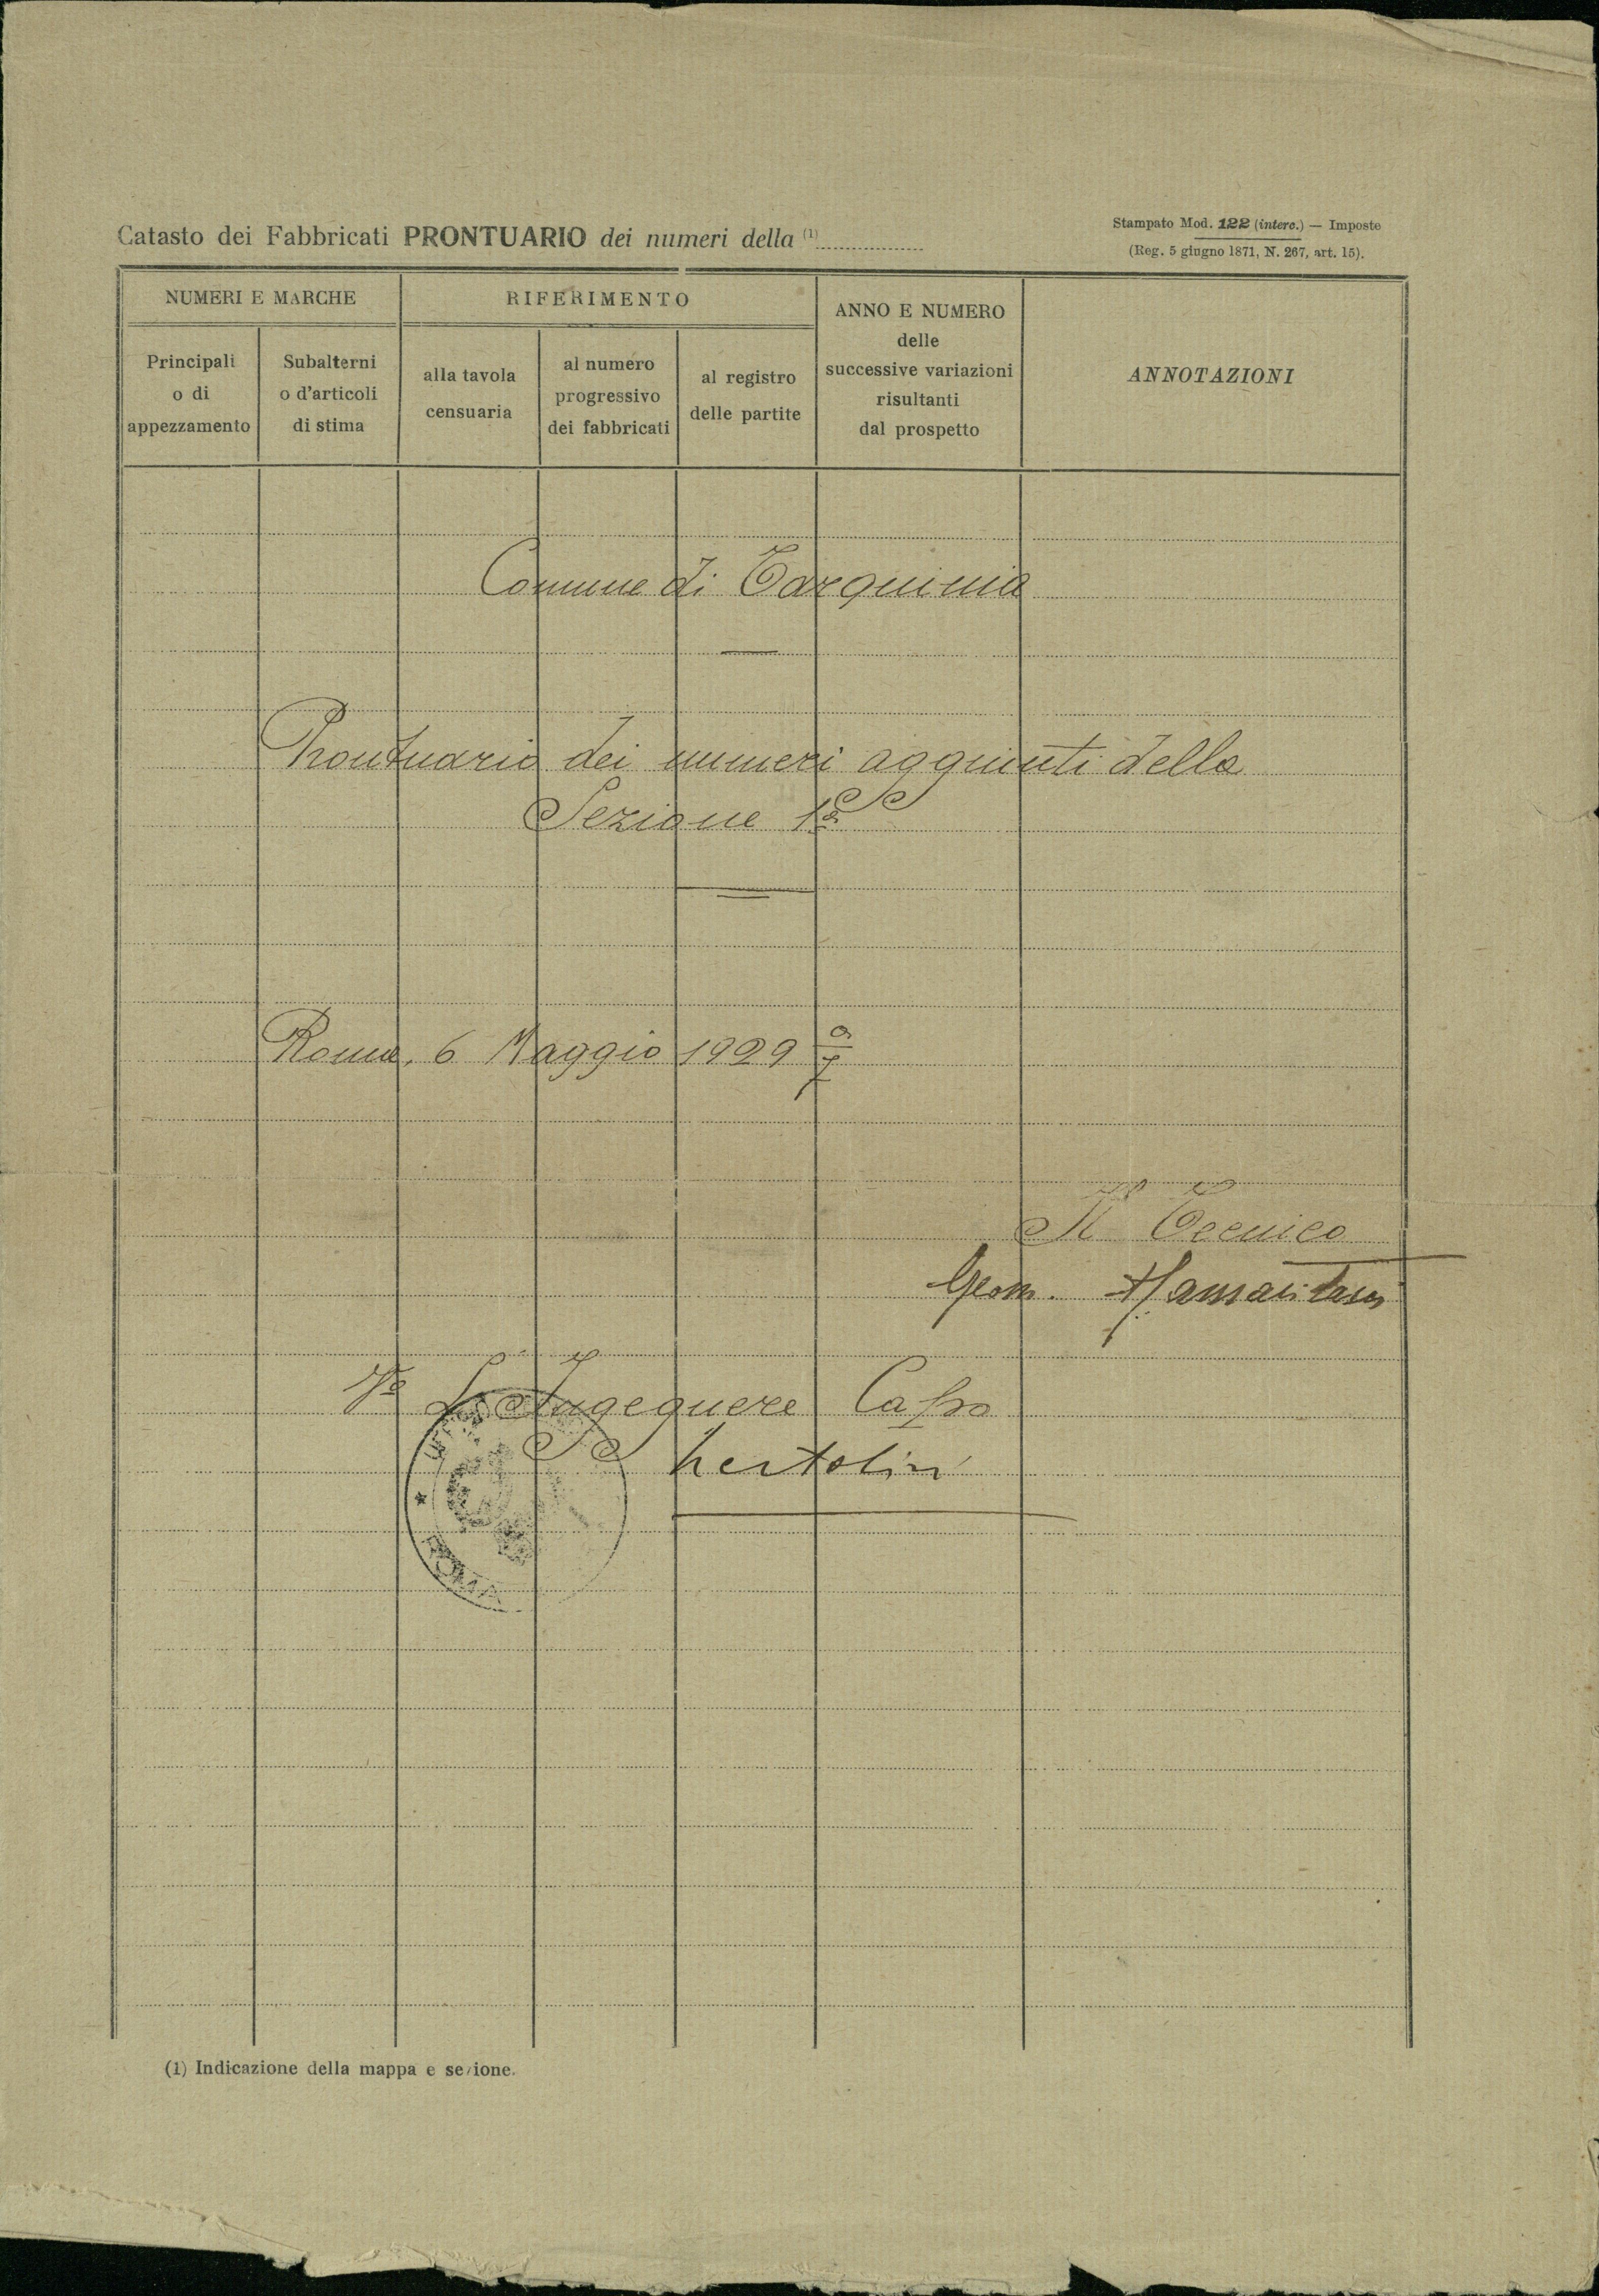 Catasto dei Fabbricati PRONTUARIO dei numeri della (1)
Stampato Mod. 122 (interc.) — Imposte
(Reg. 5 giugno 1871, N. 267, art. 15).
NUMERI E MARCHE
RIFERIMENTO
ANNO E NUMERO
delle
successive variazioni
risultanti
dal prospetto
ANNOTAZIONI
Principali
o di
appezzamento
Subalterni
o d'articoli
di stima
alla tavola
censuaria
al numero
progressivo
dei fabbricati
al registro
delle partite
Comune di Tarquinia
Prontuario dei numeri aggiunti della
Sezione 1ª
Roma, 6 Maggio 1929 a/7
Il Tecnico
Geom.
Vº L'Ingegnere Capo
ROMA
(1) Indicazione della mappa e sezione.